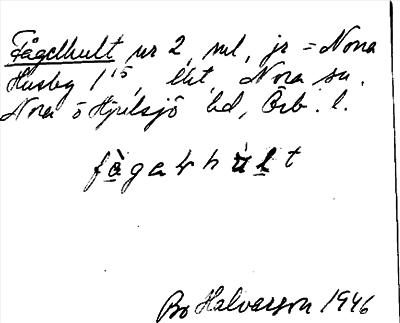 Fågelhult nr 2, ml, jr = Nora
Husby 1¹⁵, lht, Nora sn.
Nora o Hjulsjö hd, Örb. l.
fågalhult
Bo Halvarson 1946